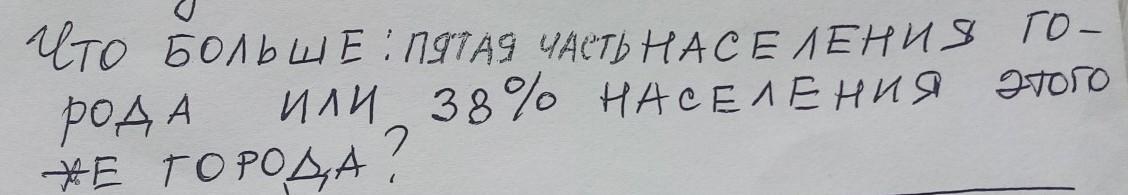 Что БОЛЬШЕ: ПЯТАЯ ЧАСТЬ НАСЕЛЕНИЯ ГО-
РОДА ИЛИ 38% НАСЕЛЕНИЯ ЭТОГО
ЖЕ ГОРОДА?